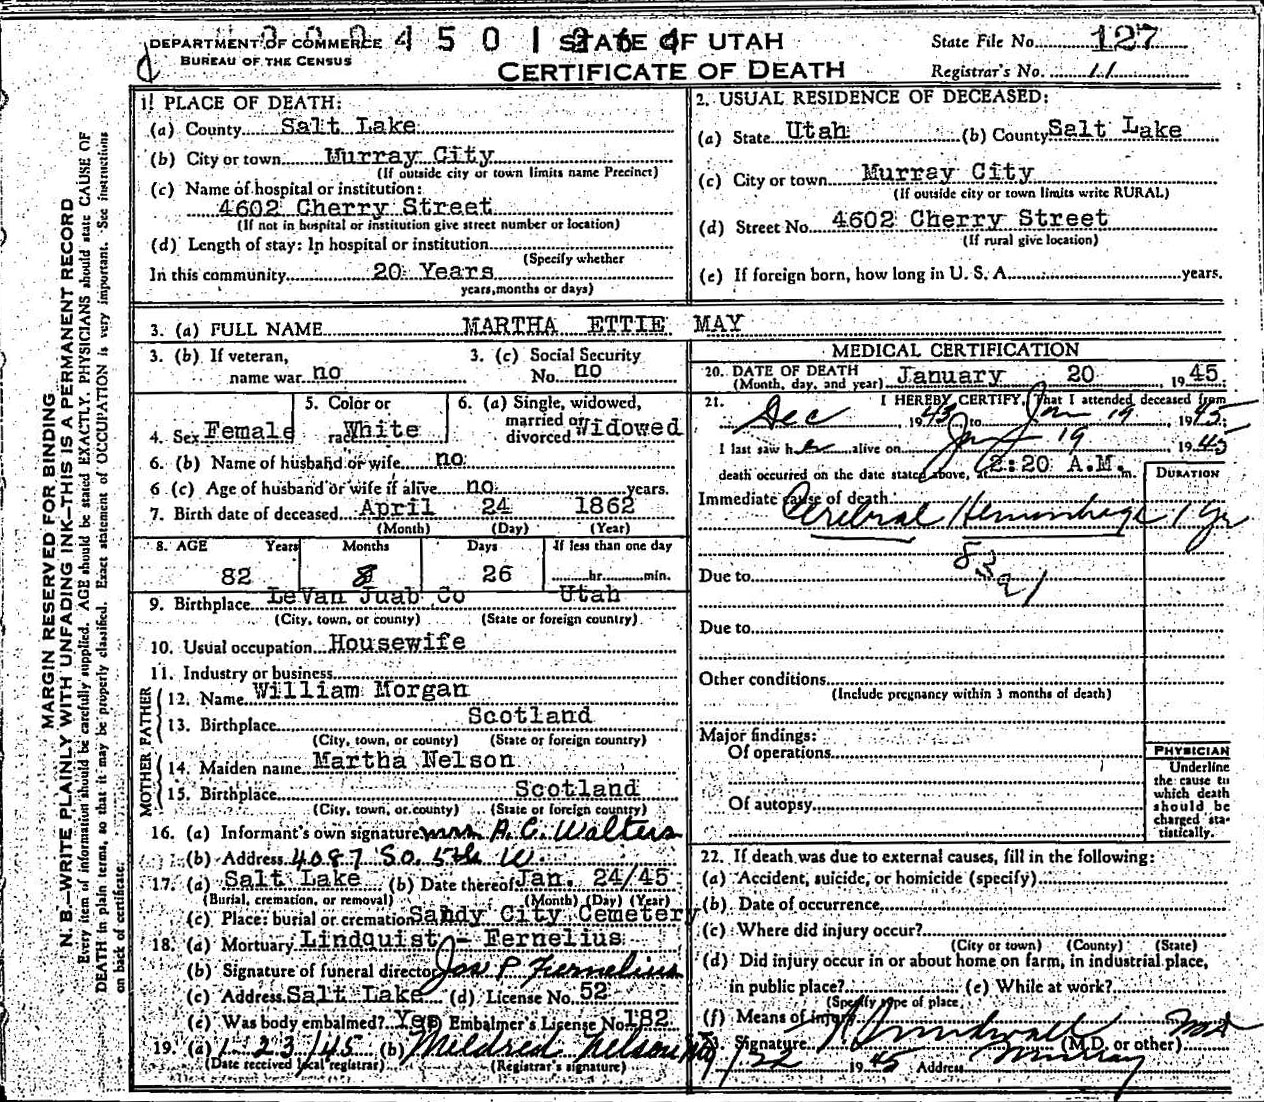 DEPARTMENT OF COMMERCE
BUREAU OF THE CENSUS
STATE OF UTAH
CERTIFICATE OF DEATH
State File No. 127
Registrar's No. 11
MARGIN RESERVED FOR BINDING
N. B.—WRITE PLAINLY WITH UNFADING INK—THIS IS A PERMANENT RECORD
Every item of information should be carefully supplied. AGE should be stated EXACTLY. PHYSICIANS should state CAUSE OF
DEATH in plain terms, so that it may be properly classified. Exact statement of OCCUPATION is very important. See instructions
on back of certificate.
1. PLACE OF DEATH:
(a) County Salt Lake
(b) City or town Murray City
(If outside city or town limits name Precinct)
(c) Name of hospital or institution:
4602 Cherry Street
(If not in hospital or institution give street number or location)
(d) Length of stay: In hospital or institution
(Specify whether
In this community 20 Years
years, months or days)
2. USUAL RESIDENCE OF DECEASED:
(a) State Utah (b) County Salt Lake
(c) City or town Murray City
(If outside city or town limits write RURAL)
(d) Street No. 4602 Cherry Street
(If rural give location)
(e) If foreign born, how long in U. S. A. years.
3. (a) FULL NAME MARTHA ETTIE MAY
3. (b) If veteran,
name war no
3. (c) Social Security
No. no
4. Sex Female
5. Color or
race White
6. (a) Single, widowed,
married or
divorced Widowed
6. (b) Name of husband or wife no
6 (c) Age of husband or wife if alive no years.
7. Birth date of deceased April 24 1862
(Month) (Day) (Year)
8. AGE Years Months Days If less than one day
82 8 26 hr. min.
9. Birthplace LeVan Juab Co Utah
(City, town, or county) (State or foreign country)
10. Usual occupation Housewife
11. Industry or business
FATHER
12. Name William Morgan
13. Birthplace Scotland
(City, town, or county) (State or foreign country)
MOTHER
14. Maiden name Martha Nelson
15. Birthplace Scotland
(City, town, or county) (State or foreign country)
16. (a) Informant's own signature Mrs A. C. Walters
(b) Address 4087 So. 5th W.
17. (a) Salt Lake (b) Date thereof Jan. 24/45
(Burial, cremation, or removal) (Month) (Day) (Year)
(c) Place: burial or cremation Sandy City Cemetery
18. (a) Mortuary Lindquist - Fernelius
(b) Signature of funeral director Jos P Fernelius
(c) Address Salt Lake (d) License No. 52
(e) Was body embalmed? Yes Embalmer's License No. 182
19. (a) 1-23/45 (b) Mildred Nelson
(Date received local registrar) (Registrar's signature)
MEDICAL CERTIFICATION
20. DATE OF DEATH
(Month, day, and year) January 20, 1945
21. I HEREBY CERTIFY, That I attended deceased from
Dec 1943 to Jan 19 1945
I last saw her alive on Jan 19 1945
death occurred on the date stated above, at 2:20 A.M. m.
DURATION
Immediate cause of death:
Cerebral Hemorrhage 1 yr
83a1
Due to
Due to
Other conditions
(Include pregnancy within 3 months of death)
Major findings:
Of operations
Of autopsy
PHYSICIAN
Underline
the cause to
which death
should be
charged sta-
tistically.
22. If death was due to external causes, fill in the following:
(a) Accident, suicide, or homicide (specify)
(b) Date of occurrence
(c) Where did injury occur?
(City or town) (County) (State)
(d) Did injury occur in or about home on farm, in industrial place,
in public place? (e) While at work?
(Specify type of place)
(f) Means of injury
23. Signature (M.D. or other)
1/22 1945 Address Murray